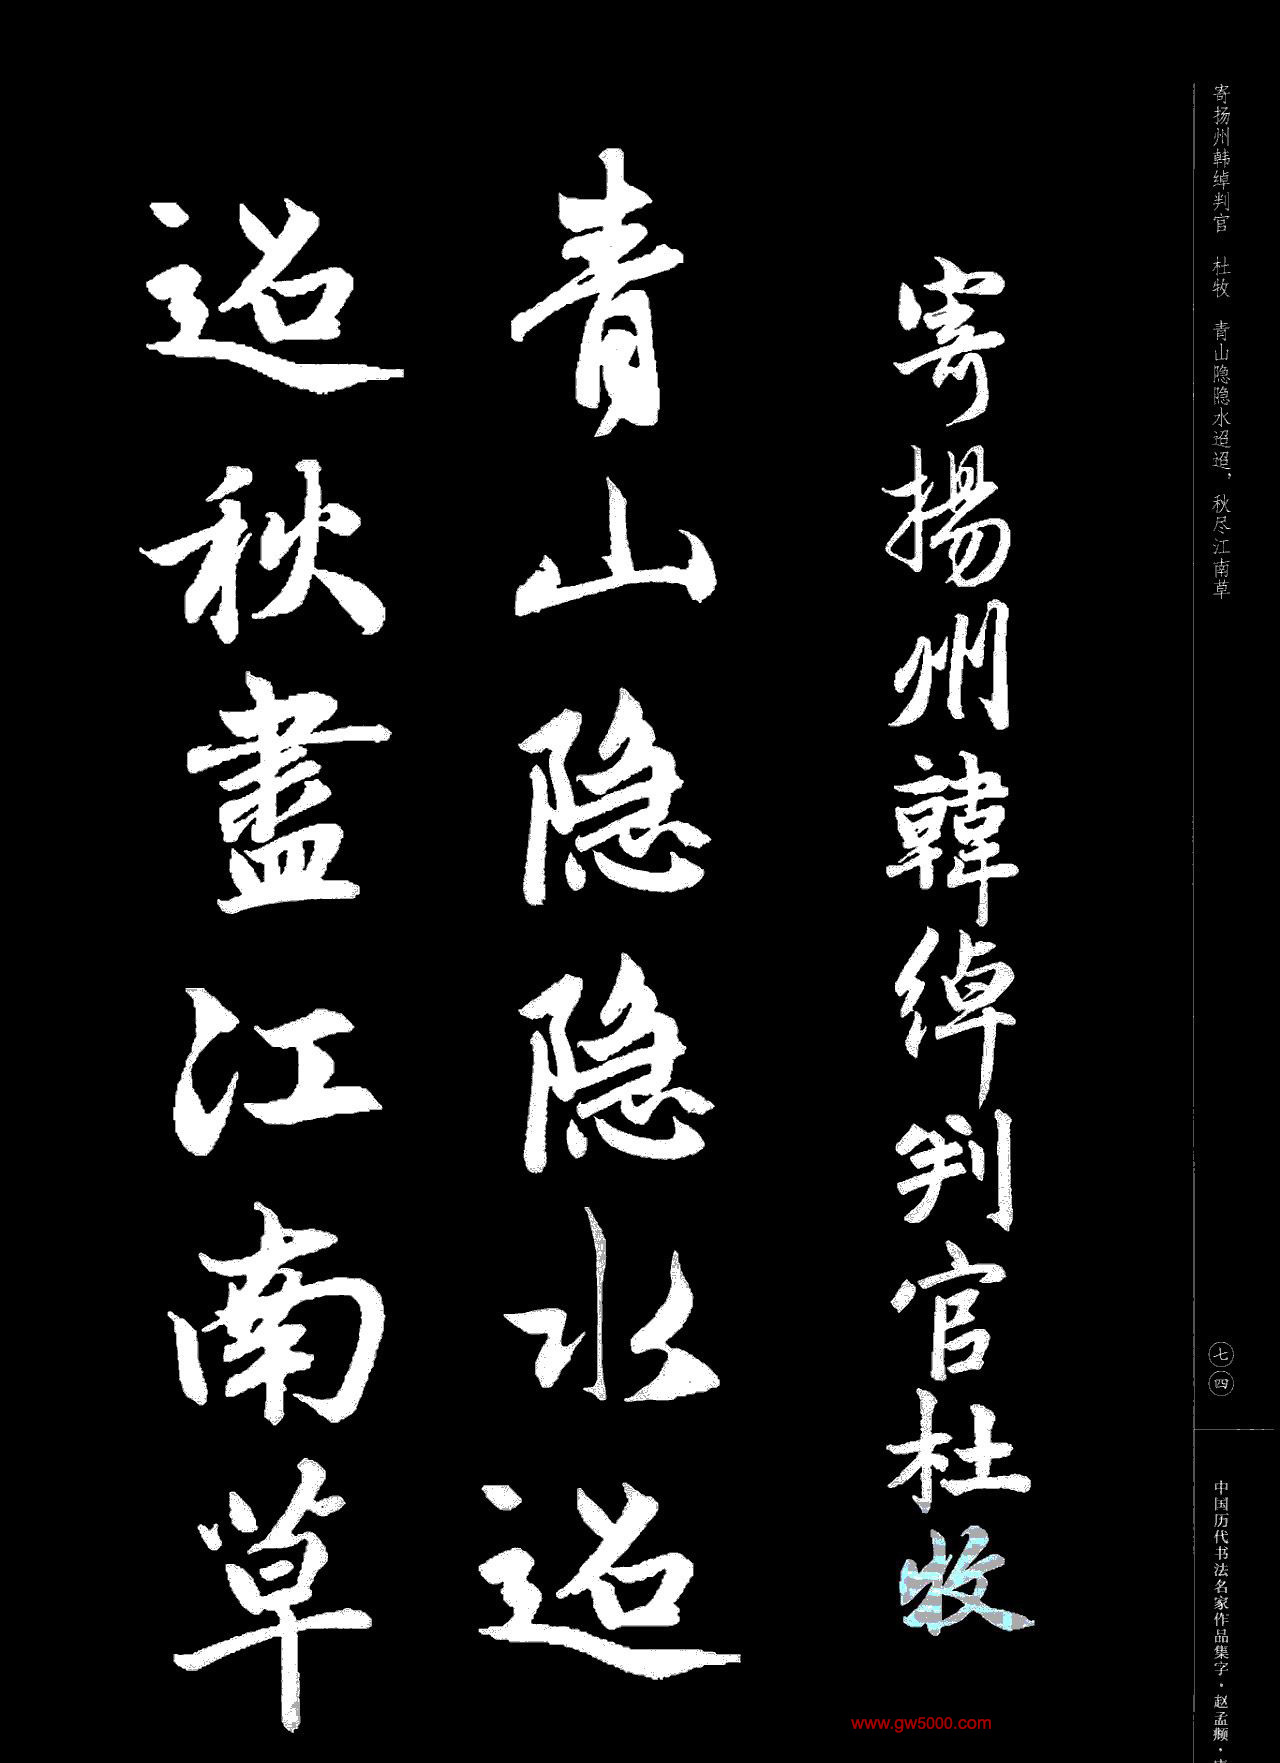 寄揚州韓綽判官杜牧
青山隐隐水迢
迢秋盡江南草
寄扬州韩绰判官 杜牧 青山隐隐水迢迢，秋尽江南草
七四
中国历代书法名家作品集字·赵孟頫·
www.gw5000.com